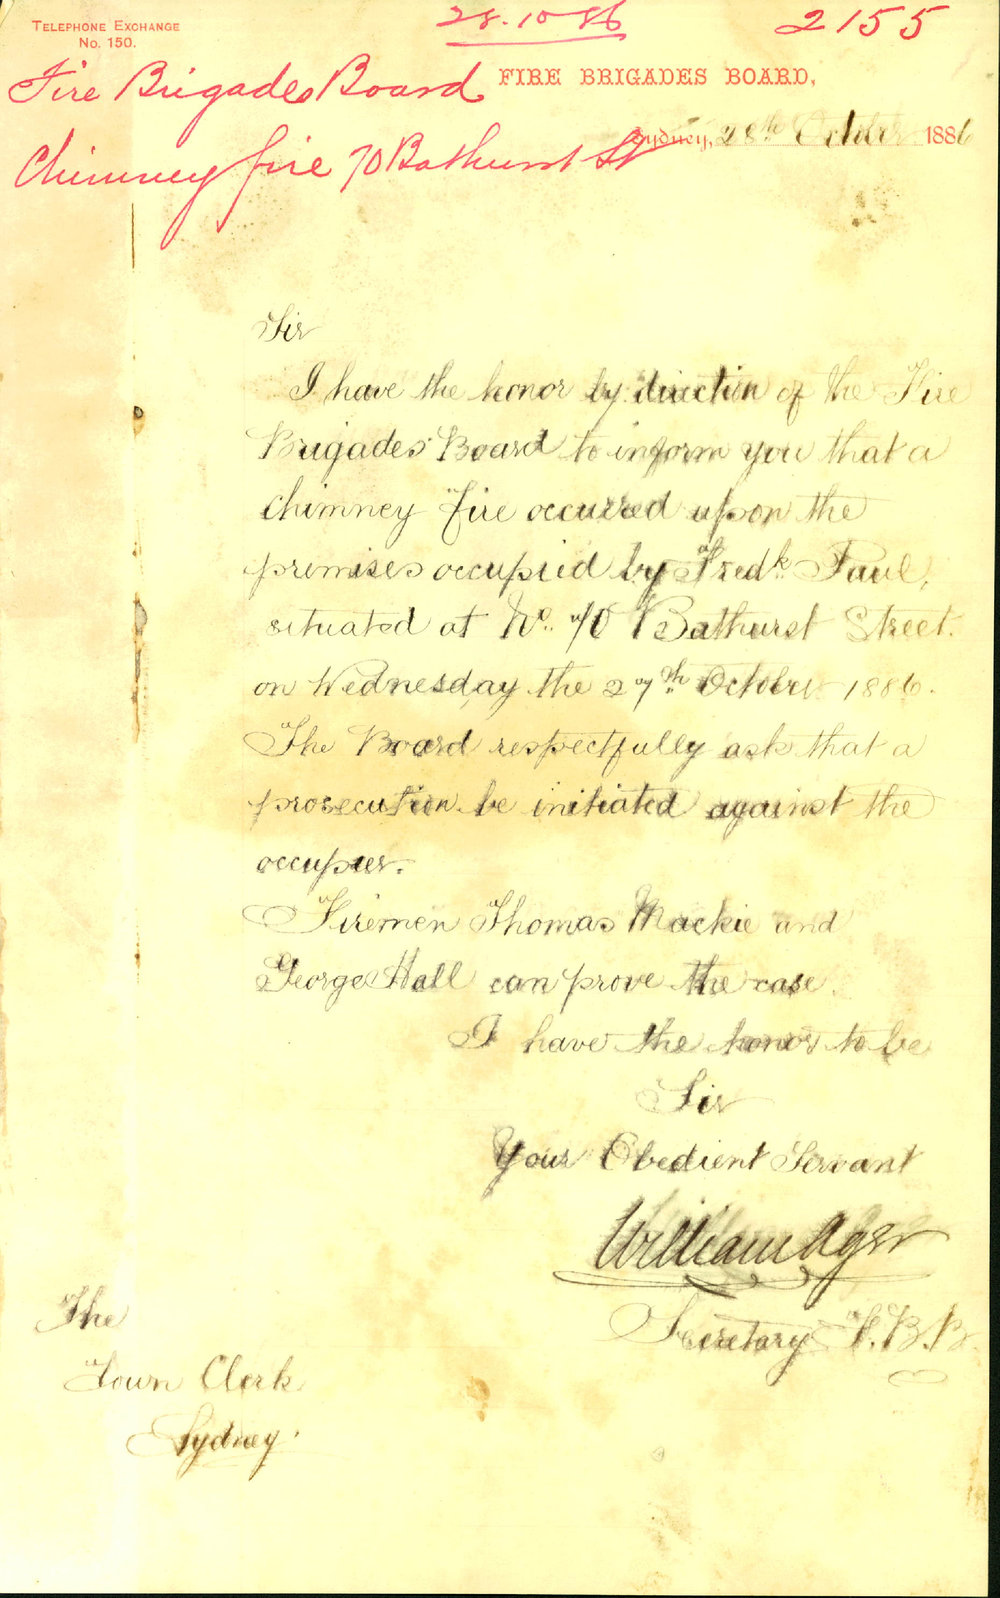 TELEPHONE EXCHANGE
No. 150.
28.10 86
2155
Fire Brigades Board
FIRE BRIGADES BOARD,
Sydney, 28th October 1886
Chimney fire 70 Bathurst St
Sir
I have the honor by direction of the Fire
Brigades Board to inform you that a
chimney fire occurred upon the
premises occupied by Fredk. Paul,
situated at No. 70 Bathurst Street.
on Wednesday the 27th October 1886.
The Board respectfully ask that a
prosecution be initiated against the
occupier.
Firemen Thomas Mackie and
George Hall can prove the case.
I have the honor to be
Sir
Your Obedient Servant
William Ager
Secretary F.B.B.
The
Town Clerk
Sydney.